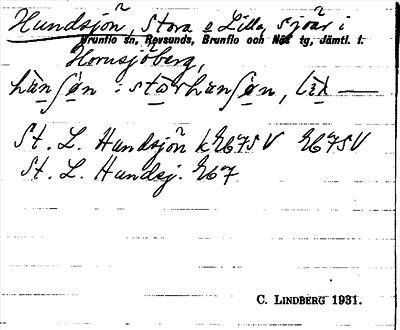 Hundsjön, Stora o Lilla, sjöar i
Brunflo sn, Revsunds, Brunflo och Näs tg, Jämtl. l.
Hornsjöberg,
St. L. Hundsjön k 267SV 267SV
St. L. Hundsj. 267
C. LINDBERG 1931.